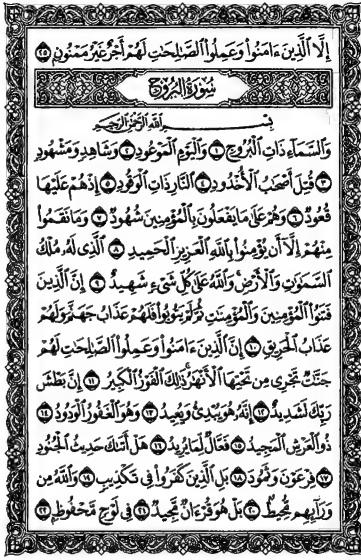 إِلَّا ٱلَّذِينَ ءَامَنُوا۟ وَعَمِلُوا۟ ٱلصَّٰلِحَٰتِ لَهُمْ أَجْرٌ غَيْرُ مَمْنُونٍ ٢٥
سُورَةُ ٱلْبُرُوجِ
بِسْمِ ٱللَّهِ ٱلرَّحْمَٰنِ ٱلرَّحِيمِ
وَٱلسَّمَآءِ ذَاتِ ٱلْبُرُوجِ ١ وَٱلْيَوْمِ ٱلْمَوْعُودِ ٢ وَشَاهِدٍ وَمَشْهُودٍ
٣ قُتِلَ أَصْحَٰبُ ٱلْأُخْدُودِ ٤ ٱلنَّارِ ذَاتِ ٱلْوَقُودِ ٥ إِذْ هُمْ عَلَيْهَا
قُعُودٌ ٦ وَهُمْ عَلَىٰ مَا يَفْعَلُونَ بِٱلْمُؤْمِنِينَ شُهُودٌ ٧ وَمَا نَقَمُوا۟
مِنْهُمْ إِلَّآ أَن يُؤْمِنُوا۟ بِٱللَّهِ ٱلْعَزِيزِ ٱلْحَمِيدِ ٨ ٱلَّذِى لَهُۥ مُلْكُ
ٱلسَّمَٰوَٰتِ وَٱلْأَرْضِ وَٱللَّهُ عَلَىٰ كُلِّ شَىْءٍ شَهِيدٌ ٩ إِنَّ ٱلَّذِينَ
فَتَنُوا۟ ٱلْمُؤْمِنِينَ وَٱلْمُؤْمِنَٰتِ ثُمَّ لَمْ يَتُوبُوا۟ فَلَهُمْ عَذَابُ جَهَنَّمَ وَلَهُمْ
عَذَابُ ٱلْحَرِيقِ ١٠ إِنَّ ٱلَّذِينَ ءَامَنُوا۟ وَعَمِلُوا۟ ٱلصَّٰلِحَٰتِ لَهُمْ
جَنَّٰتٌ تَجْرِى مِن تَحْتِهَا ٱلْأَنْهَٰرُ ذَٰلِكَ ٱلْفَوْزُ ٱلْكَبِيرُ ١١ إِنَّ بَطْشَ
رَبِّكَ لَشَدِيدٌ ١٢ إِنَّهُۥ هُوَ يُبْدِئُ وَيُعِيدُ ١٣ وَهُوَ ٱلْغَفُورُ ٱلْوَدُودُ ١٤
ذُو ٱلْعَرْشِ ٱلْمَجِيدُ ١٥ فَعَّالٌ لِّمَا يُرِيدُ ١٦ هَلْ أَتَىٰكَ حَدِيثُ ٱلْجُنُودِ
١٧ فِرْعَوْنَ وَثَمُودَ ١٨ بَلِ ٱلَّذِينَ كَفَرُوا۟ فِى تَكْذِيبٍ ١٩ وَٱللَّهُ مِن
وَرَآئِهِم مُّحِيطٌۢ ٢٠ بَلْ هُوَ قُرْءَانٌ مَّجِيدٌ ٢١ فِى لَوْحٍ مَّحْفُوظٍۭ ٢٢